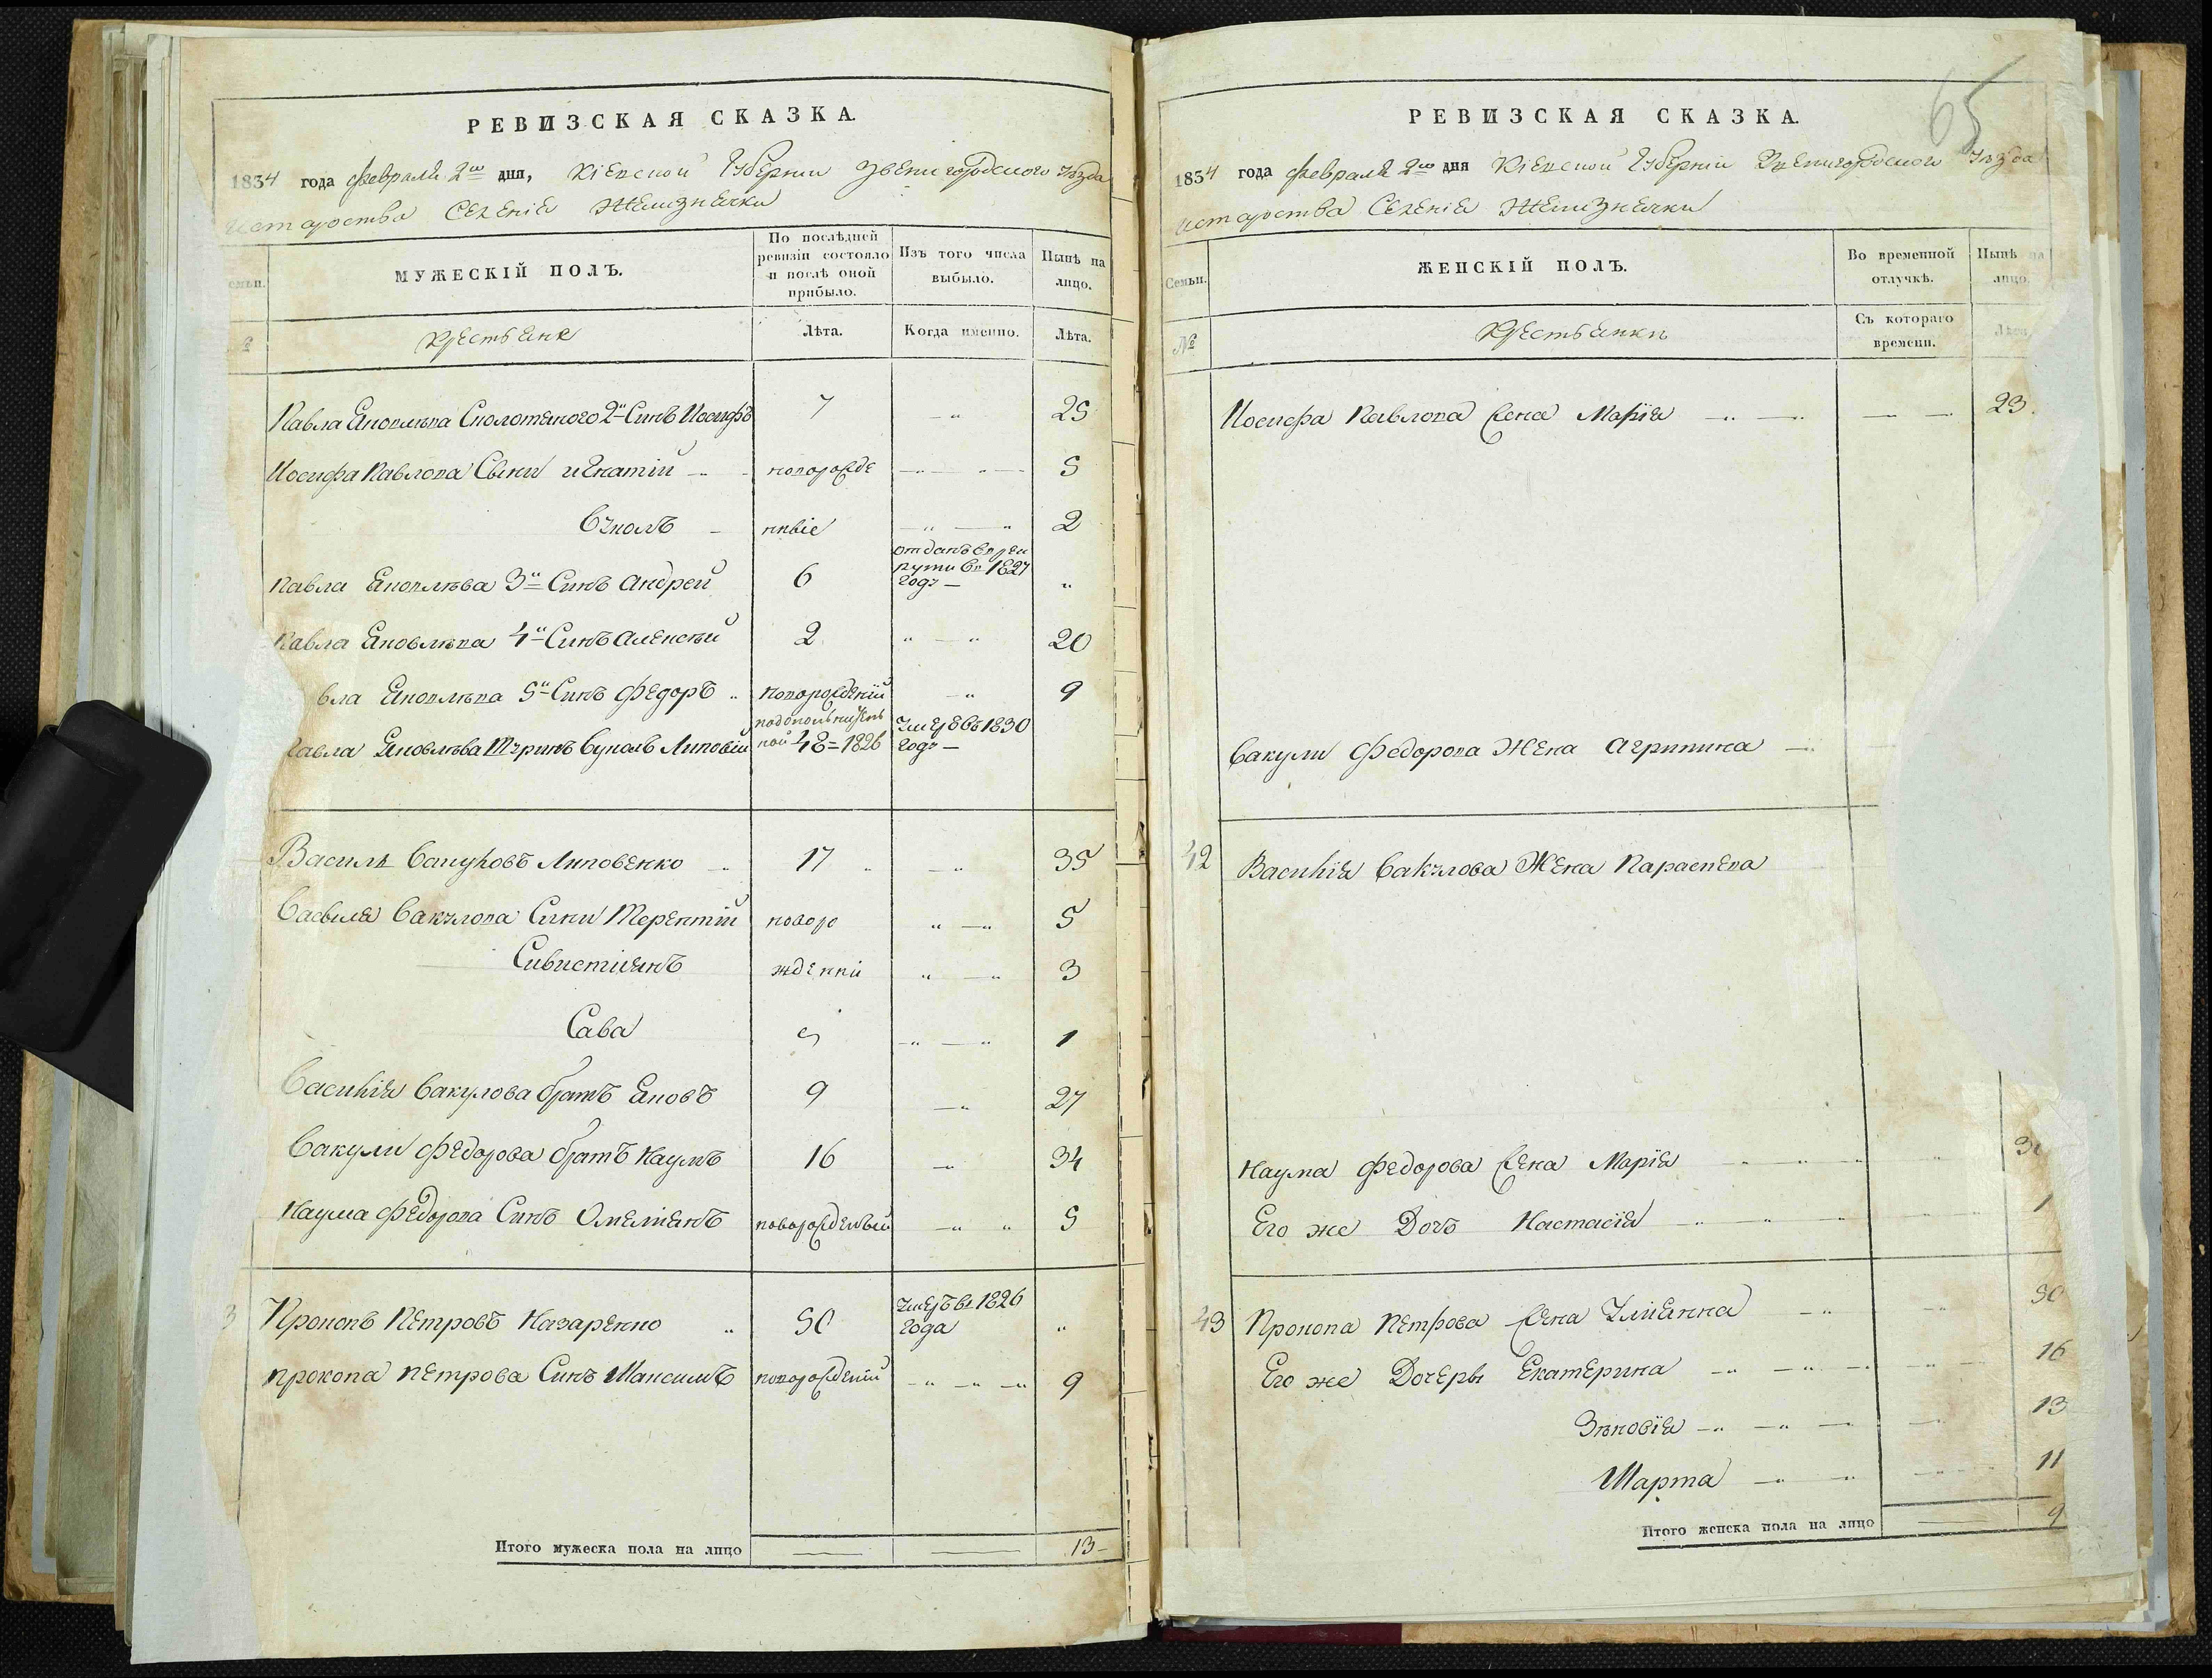 РЕВИЗСКАЯ СКАЗКА.
1834 года февраля 2го дня, Кіевской Губерніи Звенигородского Уѣзда
староства Селеніе Желизнячки
Семьи.
МУЖЕСКІЙ ПОЛЪ.
По послѣдней ревизіи состояло и послѣ оной прибыло.
Изъ того числа выбыло.
Нынѣ на лицо.
№
Крестьяне
Лѣта.
Когда именно.
Лѣта.
Павла Яковлѣва Сколотяного 2й Синъ Иосифъ 7 — " 25
Иосифа Павлова Сыни игнатій новорожде — " — 5
Вуколъ — нніе — " — " 2
Павла Яковлѣва 3й Синъ Андрей 6 отданъ в рекруты в 1827 году — "
Павла Яковлѣва 4й Синъ Алексѣй 2 " — " 20
вла Яковлѣва 5й Синъ Федоръ " новорожденій — " 9
Павла Яковлѣва Шуринъ Вуколъ Липовій 48 = 1826 Умеръ въ 1830 году —
Василь Вакуловъ Липовенко 17 — " 35
Василя Вакулова Сини Терентій новоро " — " 5
Сивистіянъ жденни " — " 3
Сава " — " 1
Василія Вакулова братъ Яковъ 9 — " 27
Вакули Федорова братъ Наумъ 16 — " 34
Наума Федорова Синъ Омеліянъ новорожденый — " " 5
3 Прокопъ Петровъ Назаренко " 50 Умеръ въ 1826 года "
Прокопа Петрова Синъ Максимъ новорожденій — " — " — 9
Итого мужеска пола на лицо 13 —
65
РЕВИЗСКАЯ СКАЗКА.
1834 года февраля 2го дня Кіевской Губерніи Звенигородского Уѣзда
староства Селеніе Желизнячки
Семьи.
ЖЕНСКІЙ ПОЛЪ.
Во временной отлучкѣ.
Нынѣ на лицо.
№
Крестьянки
Съ котораго времени.
Лѣта
Иосифа Павлова жена Марія — " — — — 23.
Вакули Федорова Жена Агрипина —
42 Василія Вакулова Жена Параскева
Наума Федорова жена Марія
Его же Дочь Настасія 1
43 Прокопа Петрова жена Уліянна — " 50
Его же Дочеры Екатерина — " — 16
Зѣновія — " — 13
Марта — " 11
Итого женска пола на лицо 9